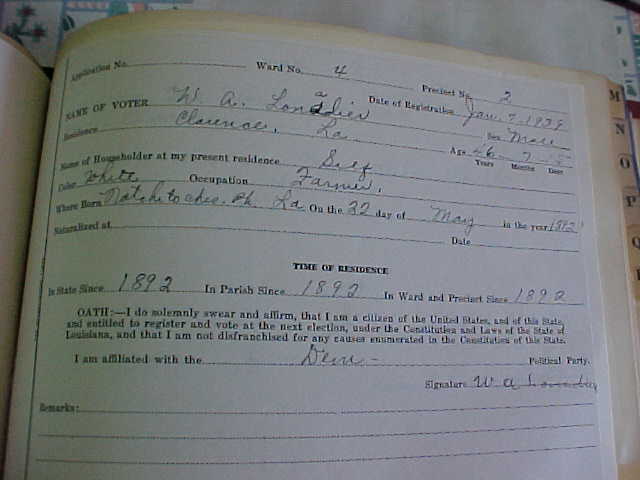 Application No. Ward No. 4 Precinct No. 2
NAME OF VOTER W. A. Date of Registration Jan. 7, 1939
Residence Clarence, La Sex Male
Age 46 7
Years Months Days
Name of Householder at my present residence Self
Color White Occupation Farmer,
Where Born Natchitoches Ph. La On the 22 day of May in the year 1892
Naturalized at Date
TIME OF RESIDENCE
In State Since 1892 In Parish Since 1892 In Ward and Precinct Since 1892
OATH:—I do solemnly swear and affirm, that I am a citizen of the United States, and of this State,
and entitled to register and vote at the next election, under the Constitution and Laws of the State of
Louisiana, and that I am not disfranchised for any causes enumerated in the Constitution of this State.
I am affiliated with the Dem - Political Party.
Signature W A
Remarks:
M
N
O
P
Q